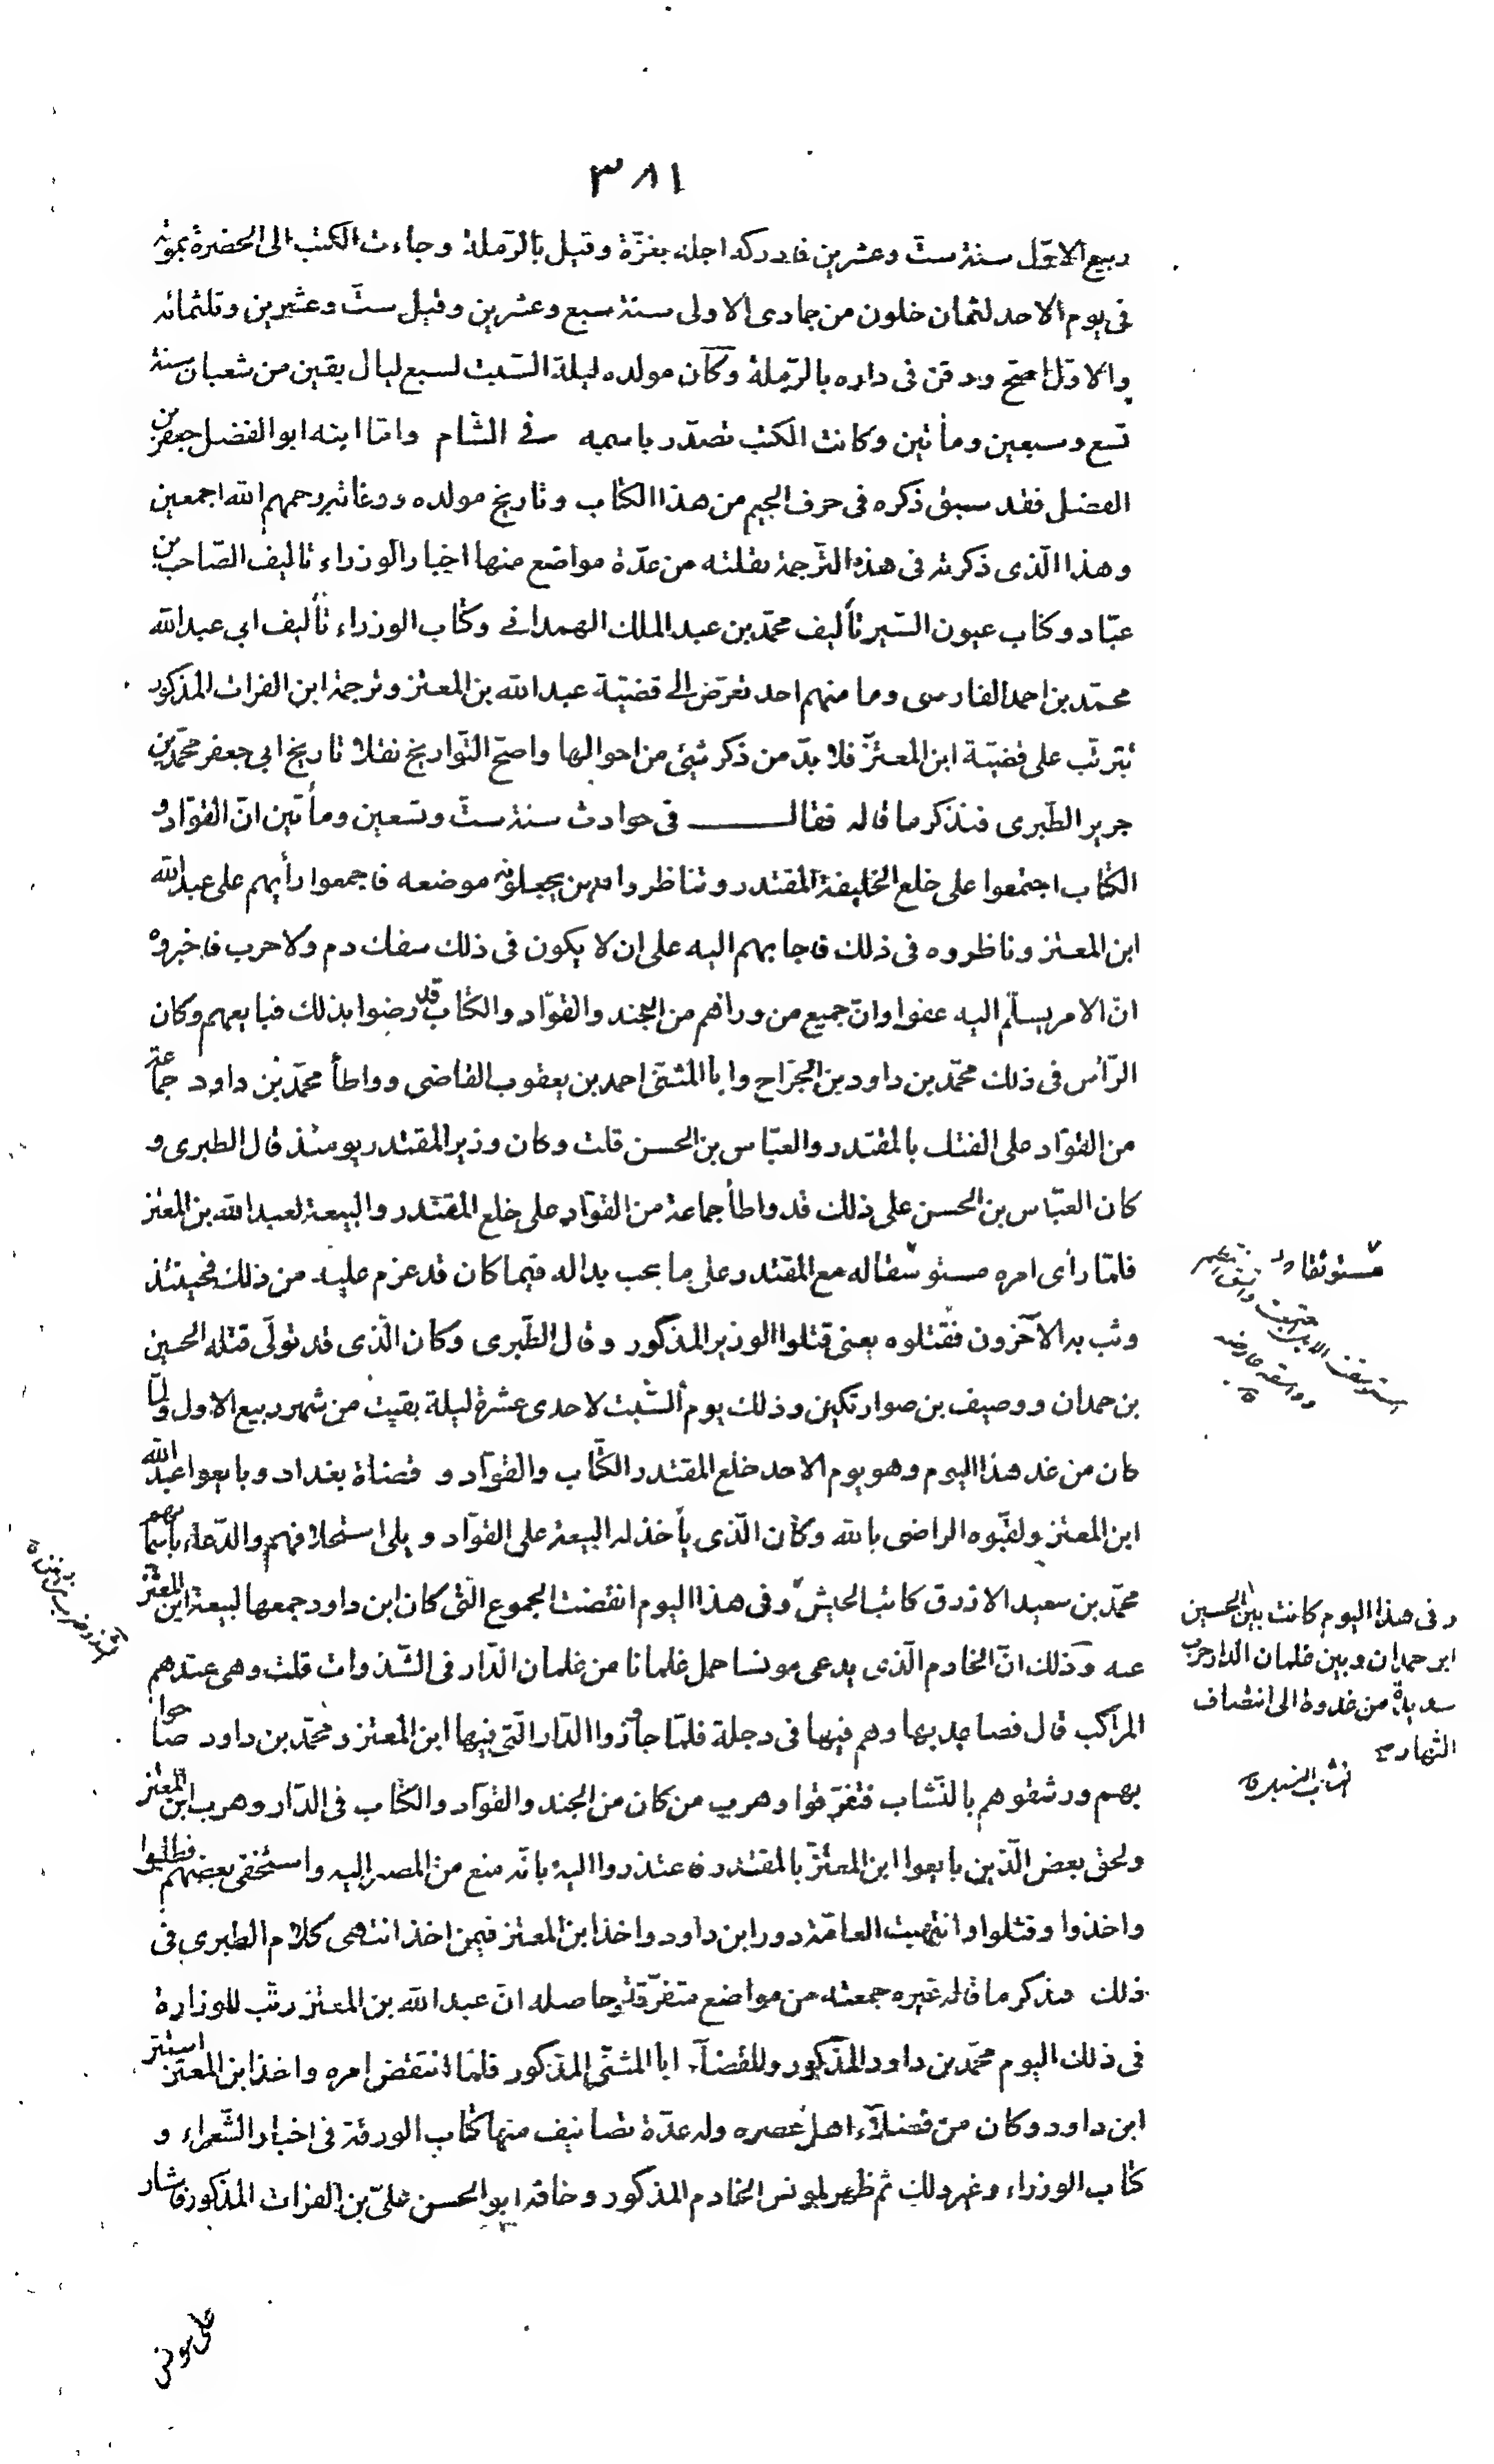 ٣٨١
ربيع الاوّل سنة ستّ وعشرين فادركه اجله بغزّة وقيل بالرّملة وجاءت الكتب الى الحضرة بموته
فى يوم الاحد لثمان خلون من جمادى الاولى سنة سبع وعشرين وقيل ستّ وعشرين وثلثمائه
والاوّل اصحّ ودفن فى داره بالرّملة وكان مولده ليلة السّبت لسبع ليال بقين من شعبان سنة
تسع وسبعين ومأتين وكانت الكتب تصدّر باسمه فى الشام وامّا ابنه ابو الفضل جعفر بن
الفضل فقد سبق ذكره فى حرف الجيم من هذا الكتاب وتاريخ مولده ووفاته رحمهم الله اجمعين
وهذا الّذى ذكرته فى هذه التّرجمة نقلته من عدّة مواضع منها اخبار الوزراء تاليف الصّاحب بن
عبّاد وكتاب عيون السّير تأليف محمّد بن عبد الملك الهمدانى وكتاب الوزراء تأليف ابى عبد الله
محمّد بن احمد الفارسى وما منهم احد تعرّض الى قضيّة عبد الله بن المعتز وترجمة ابن الفرات المذكور
تترتّب على قضيّة ابن المعتزّ فلا بدّ من ذكر شئ من احوالها واصحّ التّواريخ نقلا تاريخ ابى جعفر محمّد بن
جرير الطّبرى فنذكر ما قاله فقال فى حوادث سنة ستّ وتسعين ومأتين انّ القوّاد و
الكتّاب اجتمعوا على خلع الخليفة المقتدر وتناظروا فيمن يجعلونه موضعه فاجمعوا رأيهم على عبد الله
ابن المعتز وناظروه فى ذلك فاجابهم اليه على ان لا يكون فى ذلك سفك دم ولا حرب فاخبروه
انّ الامر يسلّم اليه عفوا وانّ جميع من ورائهم من الجند والقوّاد والكتّاب قد رضوا بذلك فبايعهم وكان
الرّأس فى ذلك محمّد بن داود بن الجرّاح وابا المثنّى احمد بن يعقوب القاضى وواطأ محمّد بن داود جماعة
من القوّاد على الفتك بالمقتدر والعبّاس بن الحسن قلت وكان وزير المقتدر يومئذ قال الطبرى و
كان العبّاس بن الحسن على ذلك قد واطأ جماعة من القوّاد على خلع المقتدر والبيعة لعبد الله بن المعتز
فلمّا رأى امره مستوسقا له مع المقتدر على ما يحب بدا له فيما كان قد عزم عليه من ذلك فحينئذ
وثب به الآخرون فقتلوه يعنى قتلوا الوزير المذكور وقال الطّبرى وكان الّذى قد تولّى قتله الحسين
بن حمدان ووصيف بن صوارتكين وذلك يوم السّبت لاحدى عشرة ليلة بقيت من شهر ربيع الاول ولمّا
كان من غد هذا اليوم وهو يوم الاحد خلع المقتدر الكتّاب والقوّاد و قضاة بغداد وبايعوا عبد الله
ابن المعتز ولقّبوه الراضى بالله وكان الّذى يأخذ له البيعة على القوّاد ويلى استحلافهم والدّعاء باسمائهم
محمّد بن سعيد الازرق كاتب الجيش وفى هذا اليوم انفضت الجموع الّتى كان ابن داود جمعها لبيعة ابن المعتز
عنه وذلك انّ الخادم الّذى يدعى مونسا حمل غلمانا من غلمان الدّار فى الشّذوات قلت وهى عندهم
المراكب قال فصاعد بها وهم فيها فى دجلة فلمّا جاوزوا الدّار الّتى فيها ابن المعتز ومحمّد بن داود صاحوا
بهم ورشقوهم بالنّشاب فتفرّقوا وهرب من كان من الجند والقوّاد والكتّاب فى الدّار وهرب ابن المعتز
ولحق بعض الّذين بايعوا ابن المعتزّ بالمقتدر فاعتذروا اليه بانّه منع من المصير اليه واستخفى بعضهم فطلبوا
واخذوا وقتلوا وانتهبت العامّة دور ابن داود واخذ ابن المعتز فيمن اخذ انتهى كلام الطبرى فى
ذلك فنذكر ما قاله غيره جمعته من مواضع متفرّقة حاصله انّ عبد الله بن المعتز رتّب للوزارة
فى ذلك اليوم محمّد بن داود المذكور وللقضآء ابا المثنّى المذكور فلمّا انتقض امره واخذ ابن المعتز استتر
ابن داود وكان من فضلآء اهل عصره وله عدّة تصانيف منها كتاب الورقة فى اخبار الشّعراء و
كتاب الوزراء وغير ذلك ثم ظهر لمونس الخادم المذكور وخافه ابو الحسن علىّ بن الفرات المذكور فاشار
مستوثقا
وفى هذا اليوم كانت بين الحسين
ابن حمدان وبين غلمان الدار حرب
شديدة من غدوة الى انتصاف
النّهار
على مونس